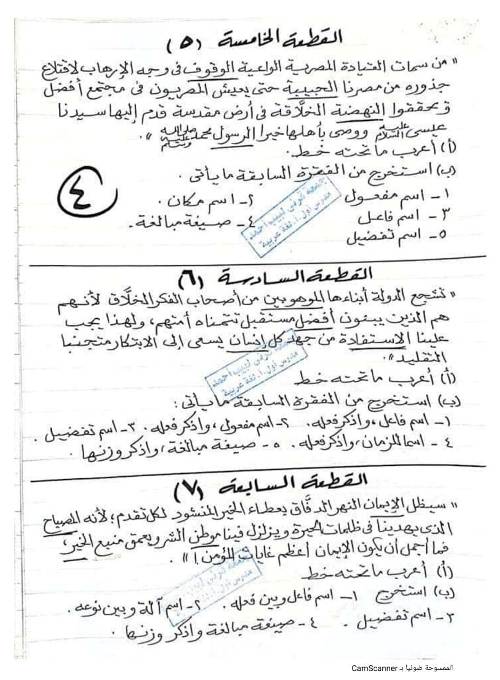 القطعة الخامسة (٥)
" من سمات القيادة المصرية الواعية الوقوف فى وجه الإرهاب لاقتلاع
جذوره من مصرنا الحبيبة حتى يعيش المصريون فى مجتمع أفضل
و يحققوا النهضة الخلاقة فى أرض مقدسة قدم إليها سيدنا
عيسى عليه السلام ووصى بأهلها خيرا الرسول محمد صلى الله عليه وسلم ".
(أ) أعرب ما تحته خط.
(ب) استخرج من الفقرة السابقة ما يأتى.
١- اسم مفعول ٢- اسم مكان.
٣- اسم فاعل ٤- صيغة مبالغة.
٥- اسم تفضيل
٤
القطعة السادسة (٦)
" تشجع الدولة أبناءها الموهوبين من أصحاب الفكر الخلاق لأنهم
هم الذين يبغون أفضل مستقبل تتمناه أمتهم، ولهذا يجب
علينا الاستفادة من جهد كل إنسان يسعى إلى الابتكار متجنبا
التقليد ".
(أ) أعرب ما تحته خط
(ب) استخرج من الفقرة السابقة ما يأتى:
١- اسم فاعل، واذكر فعله. ٢- اسم مفعول، واذكر فعله. ٣- اسم تفضيل.
٤- اسما للزمان، واذكر فعله. ٥- صيغة مبالغة، واذكر وزنها.
القطعة السابعة (٧)
" سيظل الإيمان النهر الدفاق بعطاء الخير المنشود لكل تقدم؛ لأنه المصباح
الذى يهدينا فى ظلمات الحيرة ويزلزل فينا موطن الشر ويعمق منبع الخير،
فما أجمل أن يكون الإيمان أعظم غايات المؤمن! ".
(أ) أعرب ما تحته خط
(ب) استخرج ١- اسم فاعل وبين فعله. ٢- اسم آلة وبين نوعه.
٣- اسم تفضيل. ٤- صيغة مبالغة واذكر وزنها.
الممسوحة ضوئيا بـ CamScanner